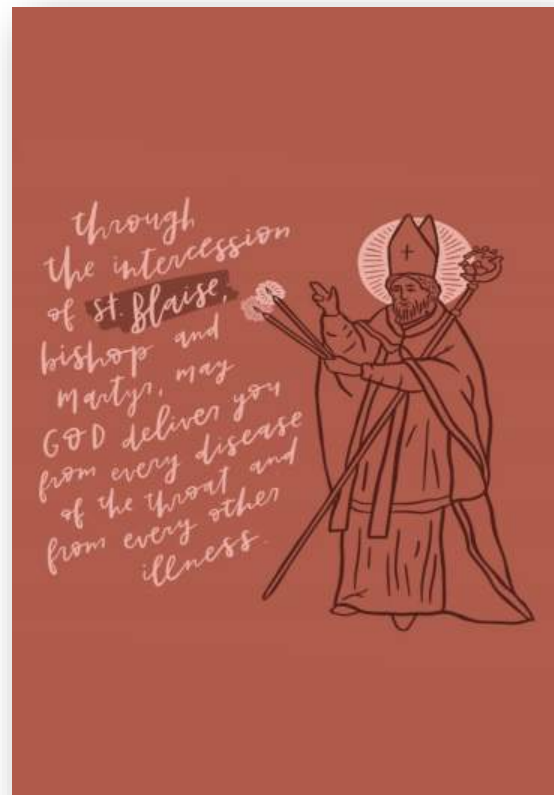 through
the intercession
of St. Blaise,
bishop and
martyr, may
GOD deliver you
from every disease
of the throat and
from every other
illness.